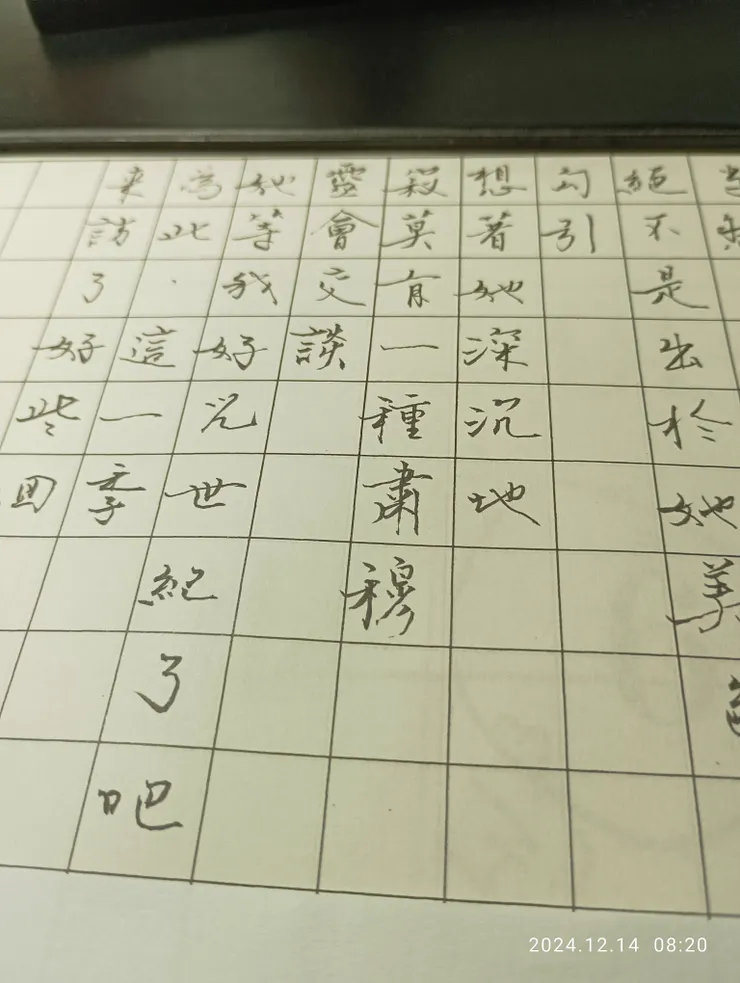 絕不是出於她美
勾引
想著她深沉地
寂寞有一種肅穆
靈會交談
她等我好幾世紀了吧
為此．這一季
來訪了好些回